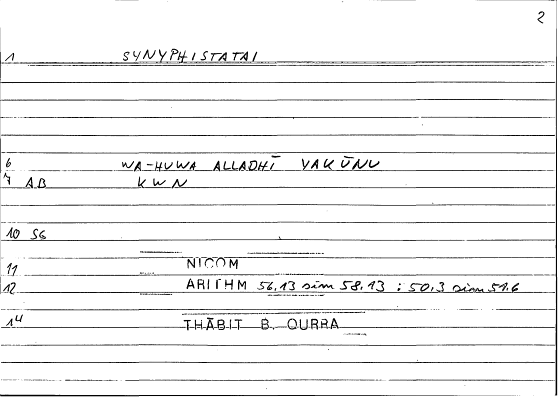 2
1 SYNYPHISTATAI
6 WA-HUWA ALLADHĪ YAKŪNU
7 AB KWN
10 SG
11 NICOM
12 ARITHM 56,13 sim 58.13 : 50,3 sim 51.6
14 THĀBIT B. QURRA